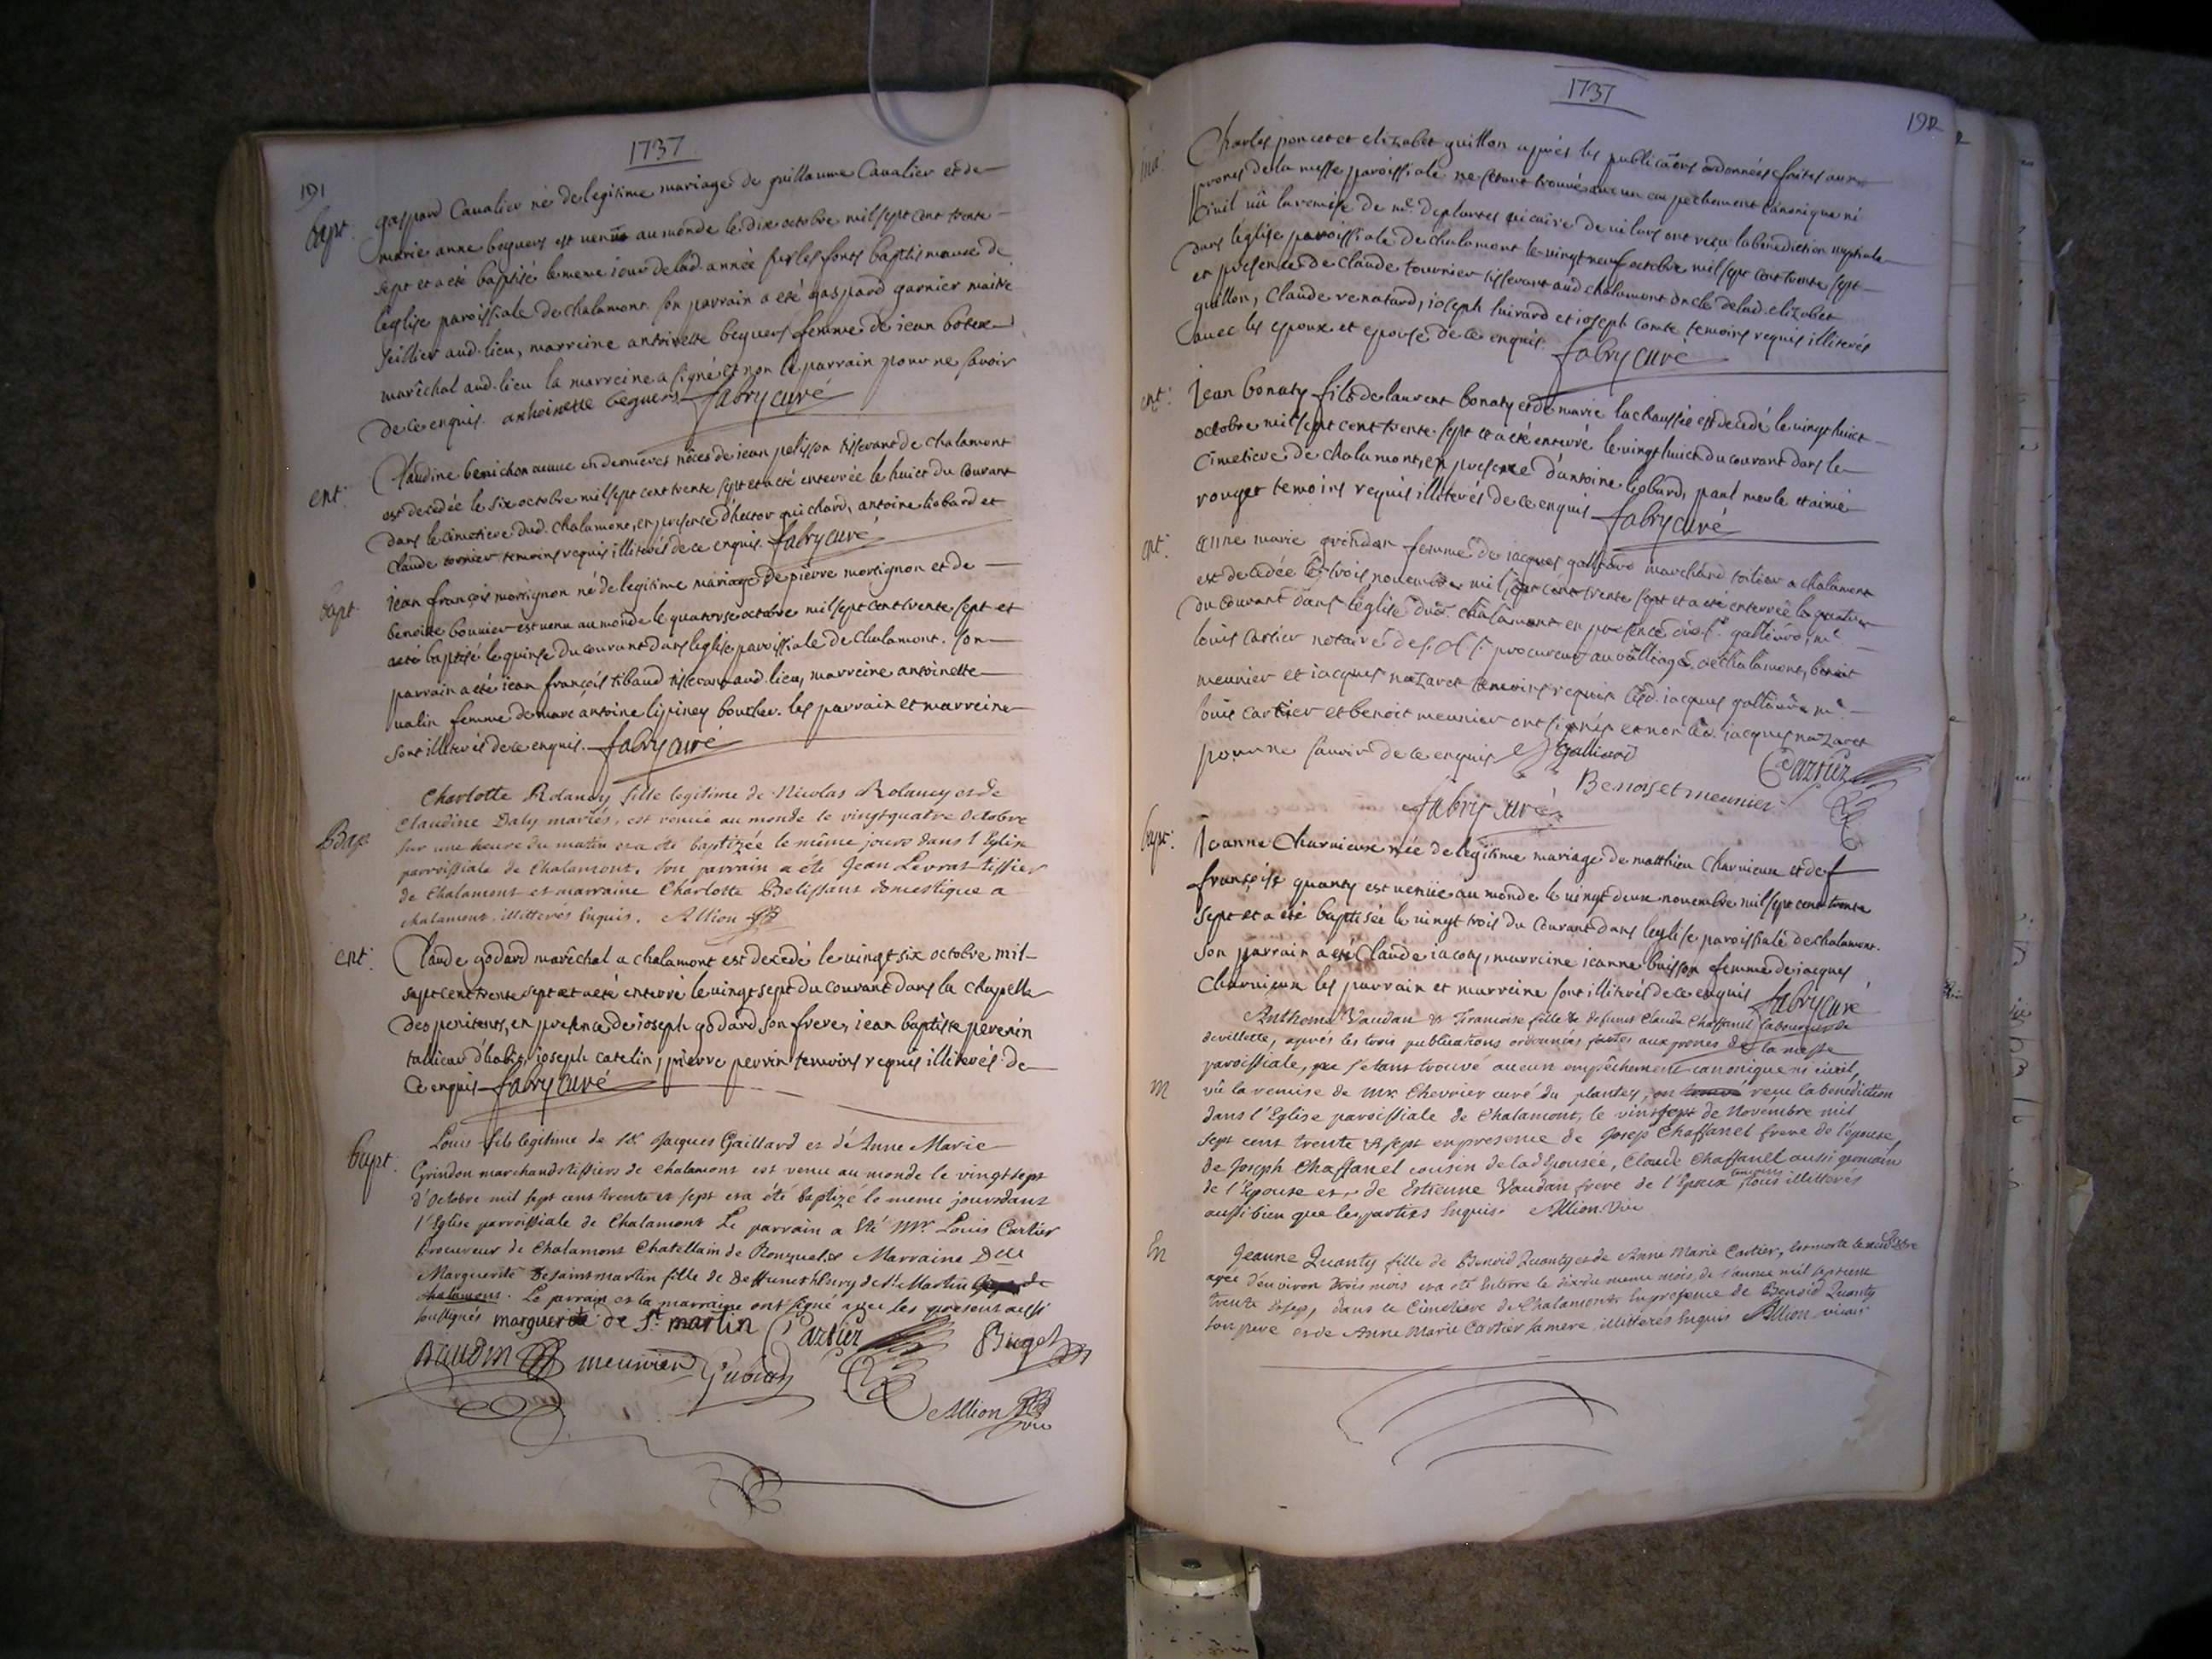 1737
191
bapt.
gaspard Cavalier né de legitime mariage de guillaume Cavalier et de
marie anne beguers est venu au monde le dix octobre mil sept cent trente
sept et a été baptisé le meme jour de lad. année sur les fonts baptismaux de
leglise paroissiale de chalamont. son parrain a été gaspard garnier maitre
sellier aud. lieu, marreine antoinette beguers femme de jean
maréchal aud. lieu la marreine a signé et non le parrain pour ne savoir
de ce enquis. anthoinette beguers fabry curé
ent.
Claudine benichon veuve en dernieres nôces de jean pelisson tisserant de chalamont
est decedée le six octobre mil sept cent trente sept et a été enterrée le huict du courant
dans le cimetiere dud. chalamont, en presence d'hector guichard, antoine liobard et
claude tornier temoins requis illiterés de ce enquis. fabry curé
bapt.
jean françois morrignon né de legitime mariage de pierre morrignon et de
benoite bouvier est venu au monde le quatorse octobre mil sept cent trente sept et
a eté baptisé le quinse du courant dans leglise paroissiale de chalamont. son
parrain a été jean françois tibaud tisserant aud. lieu, marreine antoinette
valin femme de marc antoine lipiney boucher. les parrain et marreine
sont illiterés de ce enquis. fabry curé
Bap.
Charlotte Rolancy fille legitime de Nicolas Rolancy et de
Claudine Daly mariés, est venue au monde le vingtquatre Octobre
sur une heure du matin et a été baptizée le même jours dans l'Eglise
parroissiale de Chalamont, son parrain a été Jean Levrat tissier
de Chalamont et marraine Charlotte Belissant domestique a
chalamont, illitterés Enquis. Allion
ent.
Claude godard maréchal a chalamont est decedé le vingt six octobre mil
sept cent trente sept et a eté enterré le vingt sept du courant dans la chapelle
des penitents, en presence de joseph godard son frere, jean baptiste peverin
tailleur d'habits, joseph catelin, pierre perrin temoins requis illiterés de
ce enquis fabry curé
bapt.
Louis fils legitime de Sr. Jacques Gaillard et d'Anne Marie
Grindon marchands tissiers de chalamont est venu au monde le vingtsept
d'Octobre mil sept cens trente et sept et a été baptizé le meme jour dans
l'Eglise parroissiale de Chalamont Le parrain a Eté Mr. Louis Cartier
Procureur de Chalamont Chatellain de Ronzuel et Marraine Dlle
Marguerite De saint martin fille de Deffunct henry de St. Martin de
chalamont. Le parrain et la marraine ont signé avec les presents aussi
soussignés marguerite de St. martin Cartier Buget
meunier
Allion vic.
1737
192
Charles poncet et elizabet guillon aprés les publicaõns ordonnées faites aux
prones de la messe paroissiale ne s'etant trouvé aucun empechement canonique ni
civil vû la remise de mr. deplantes vicaire de vilars ont reçu la benediction nuptiale
dans l'église paroissiale de chalamont le vingt neuf octobre mil sept cent trente sept
en presence de Claude tournier tisserant aud chalamont oncle de lad. elizabet
guillon, Claude renatard, joseph huirard et joseph comte temoins requis illiterés
avec les epoux et epouse de ce enquis. fabry curé
ent.
jean bonaty fils de laurent bonaty et de marie lachaussée est decedé le vingt huict
octobre mil sept cent trente sept et a eté enterré le vingt huict du courant dans le
cimetiere de chalamont, en presence d'antoine liobard, paul merle et aimé
rouget temoins requis illiterés de ce enquis fabry curé
ent.
anne marie grindon femme de jacques galliard marchand toilier a chalamont
est decedée le trois novembre mil sept cent trente sept et a eté enterrée le quatre
du courant dans l'église dud. chalamont en presence dud. Sr. galliard, mr.
louis cartier notaire procureur au bailliage de chalamont, benoit
meunier et jacques nazaret temoins requis led. jacques galliard mr.
louis cartier et benoit meunier ont signés et non led. jacques nazaret
pour ne savoir de ce enquis J Galliard
Cartier
Benoiset meunier
fabry curé
bapt.
Jeanne Charvieux née de legitime mariage de matthieu Charvieux et de
françoise quanty est venüe au monde le vingt deux novembre mil sept cent trente
sept et a été baptisée le vingt trois du courant dans leglise paroissiale de chalamont.
son parrain a eté Claude jacoty, marreine jeanne buisson femme de jacques
Charvieux les parrain et marreine sont illiterés de ce enquis fabry curé
M
Anthome Vaudan et Francoise fille de defunct Claude Chaffanel laboureur de
devillette, aprés les trois publications ordonnées faites aux prones de la messe
paroissiale, ne s'etant trouvé aucun empêchement canonique ni civil,
vû la remise de Mr. Chevrier curé du plantey, on reçu la benediction
dans l'Eglise paroissiale de Chalamont, le vint sept de Novémbre mil
sept cent trente et sept en presence de Josep Chaffanel frere de l'épouse,
de Joseph Chaffanel cousin de lad Epousée, Claude Chaffanel aussi germain
de l'Epouse et de Estienne Vaudan frere de l'Epoux temoins tous illittérés
aussi bien que les parties Enquis. Allion Vic
En
Jeanne Quanty fille de Benoid Quanty et de Anne Marie Cartier, est morte le neuf
agée d'environ trois mois et a été Enterre le dix du meme mois, de l'année mil sept cent
trente et sept, dans le Cimetiere de Chalamont En presence de Benoid Quanty
son pere et de Anne Marie Cartier sa mere illitterés Enquis Allion vicaire